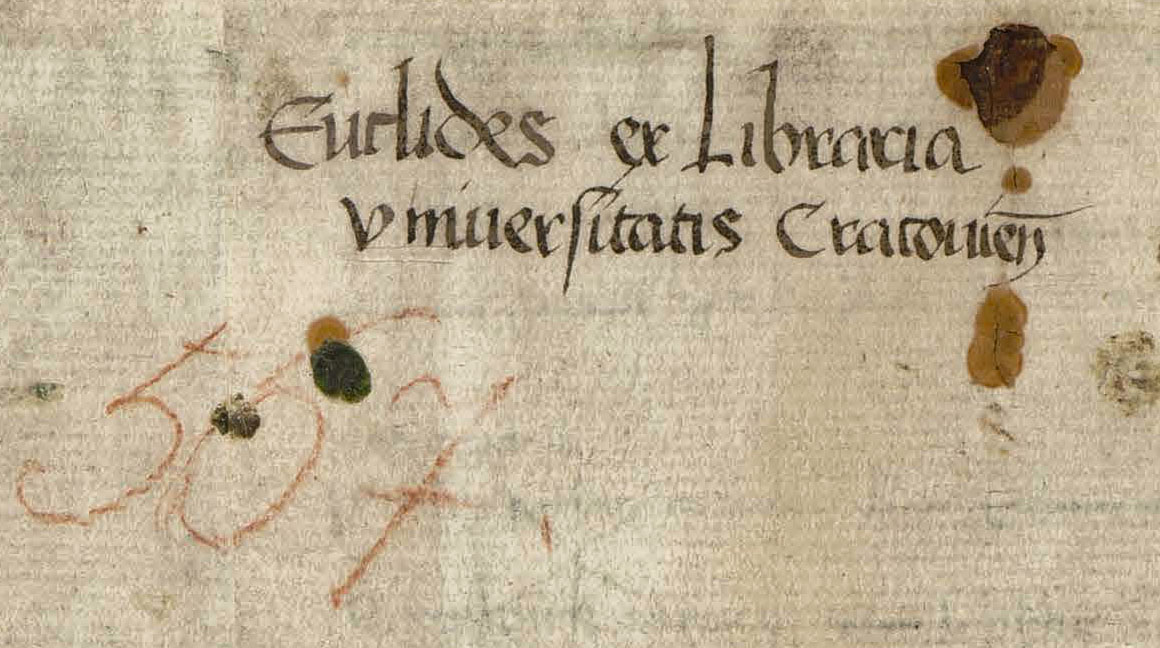 Euclides ex Libraria
Vniuersitatis Cracouień
567